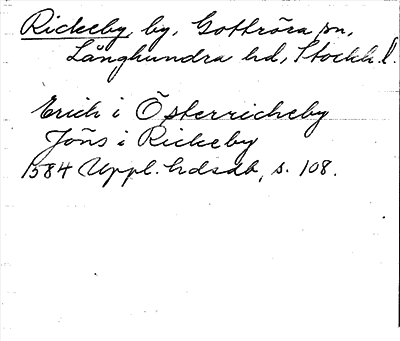 Rickeby, by, Gottröra sn,
Långhundra hd, Stockh. l.
Erich i Österricheby
Jöns i Rickeby
1584 Uppl. hdsdb, s. 108.